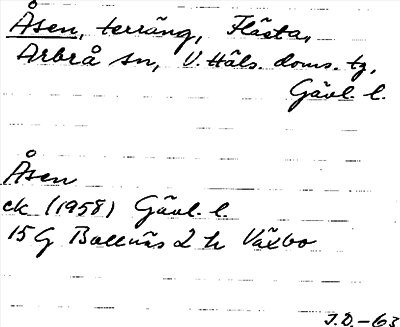 Åsen, terräng, Flästa,
Arbrå sn, V. Häls. doms. tg,
Gävl. l.
Åsen
ek (1958) Gävl. l.
15 G Bollnäs 2 h Växbo
J.D.-63